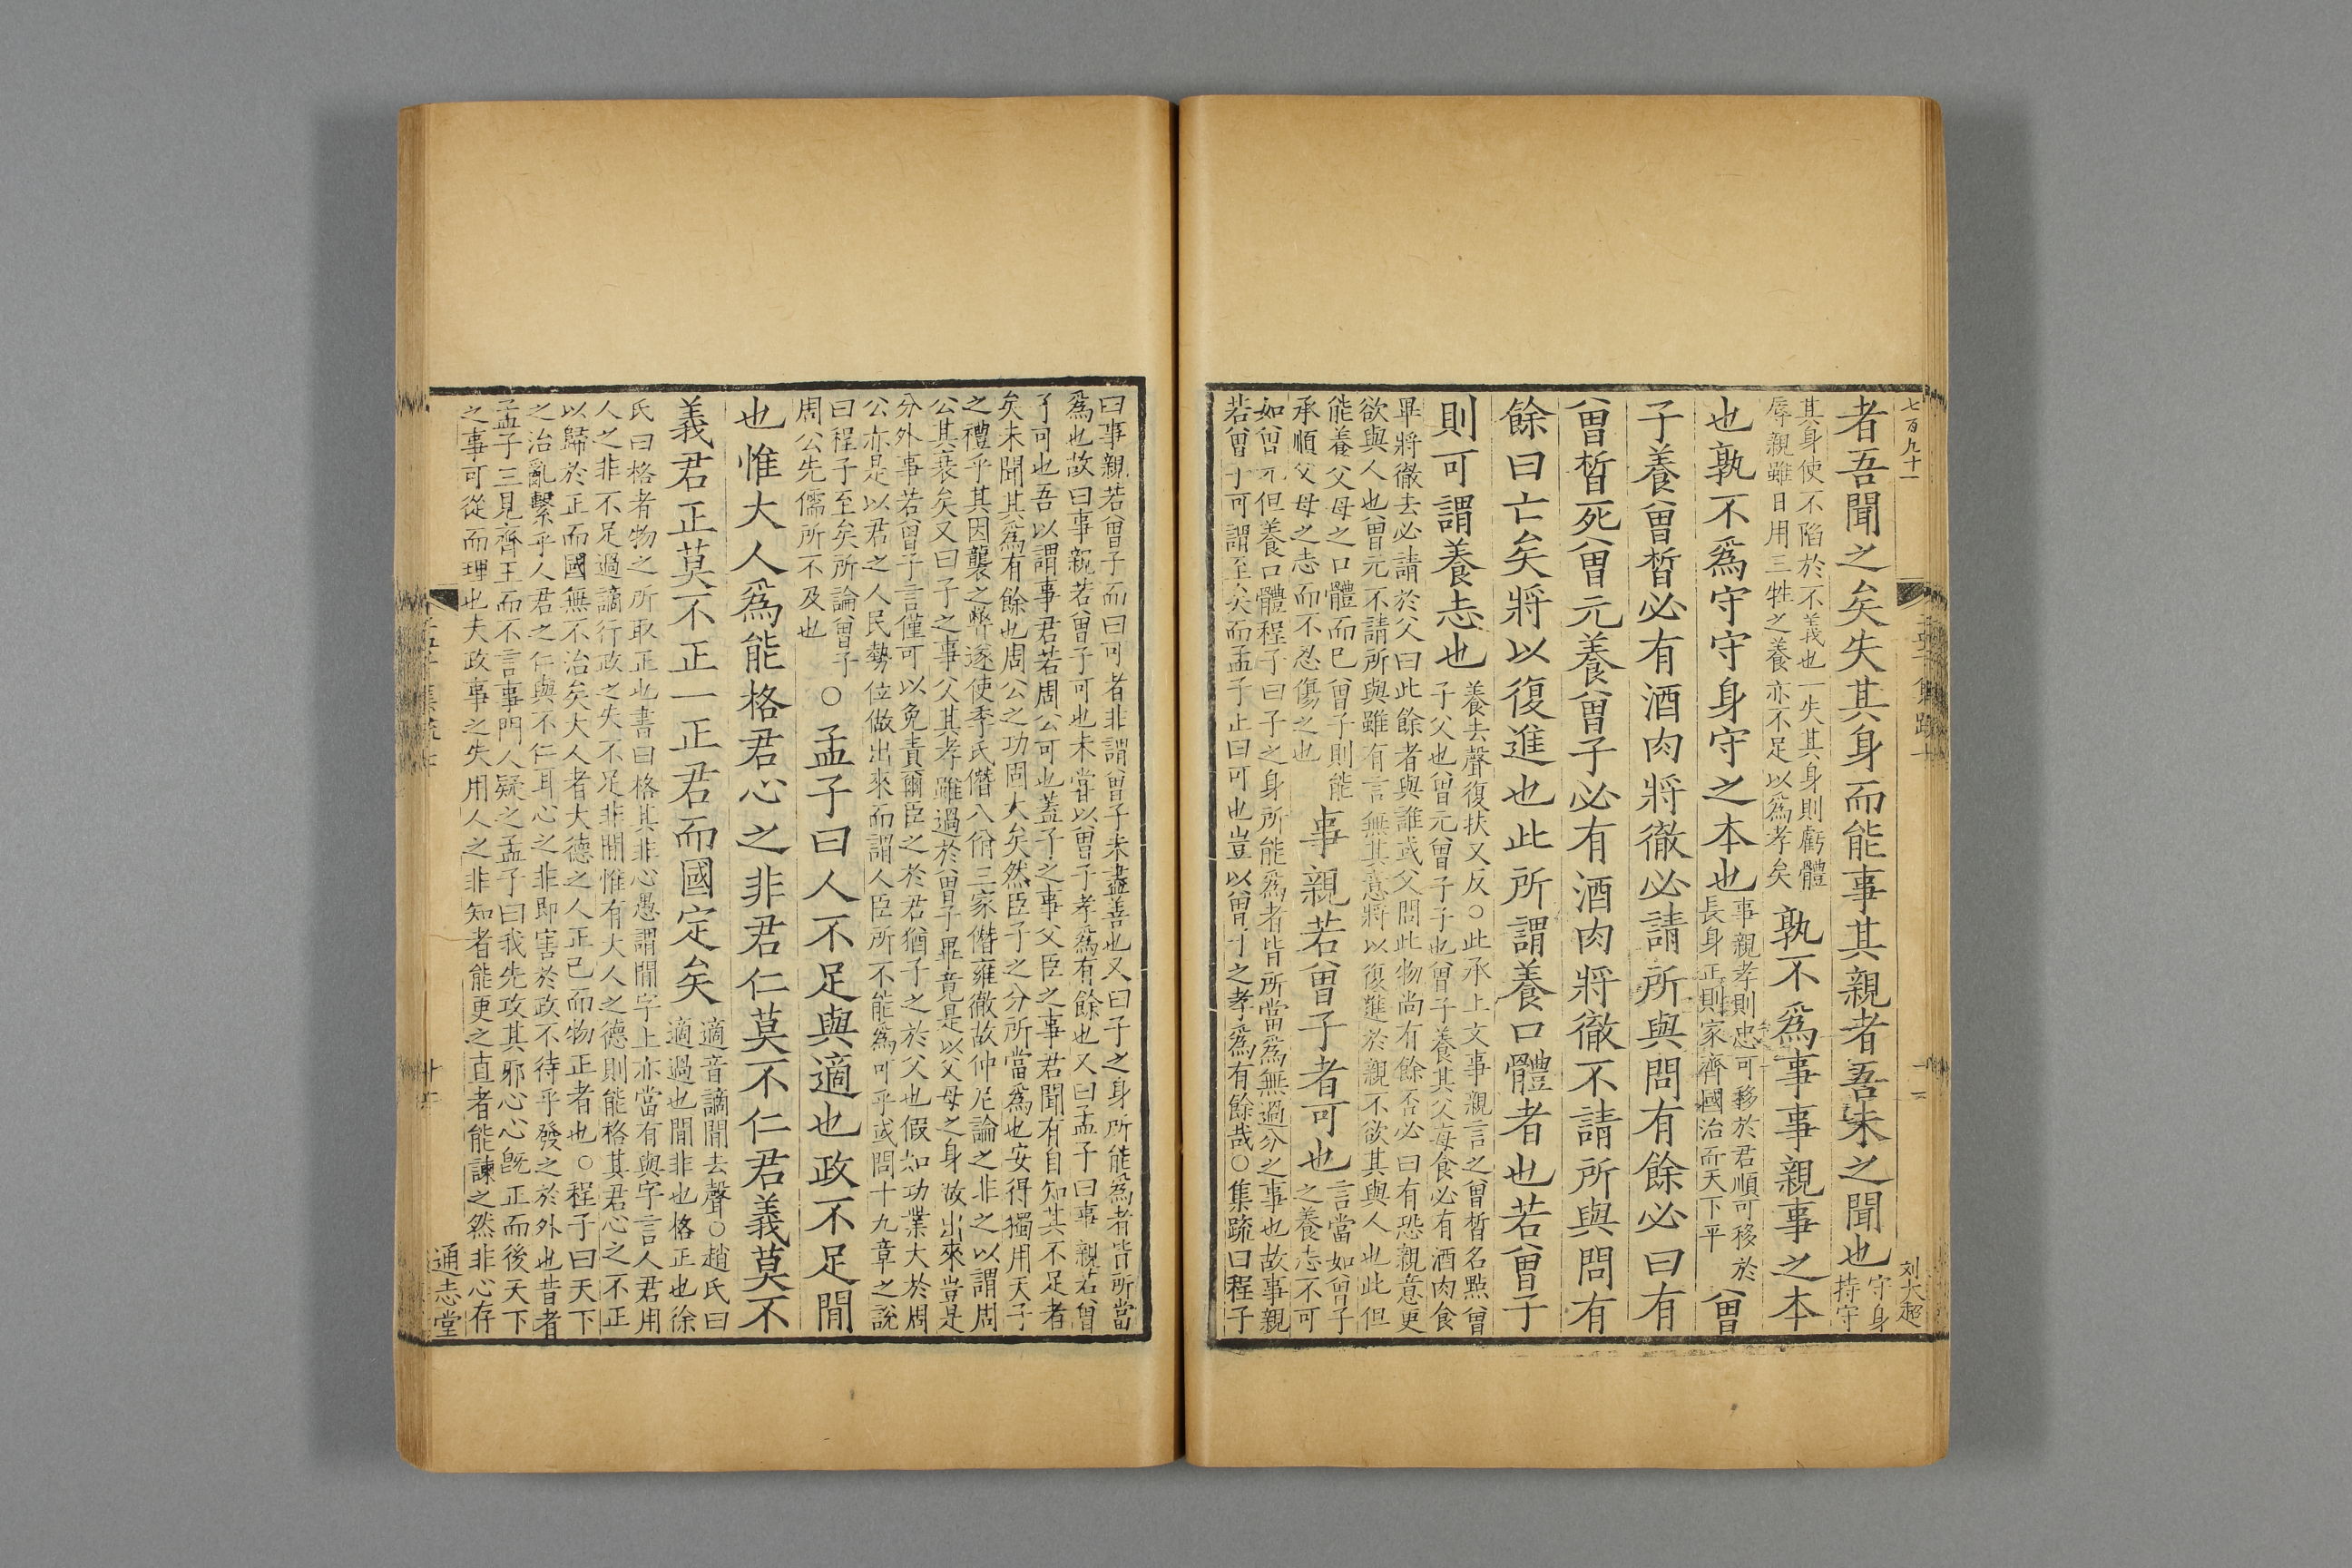 七百九十一
刘大超
者吾聞之矣失其身而能事其親者吾未之聞也守身
持守
其身使不陷於不義也一失其身則虧體
辱親雖日用三牲之養亦不足以爲孝矣
孰不爲事事親事之本
也孰不爲守守身守之本也
事親孝則忠可移於君順可移於
長身正則家齊國治而天下平
曾
子養曾晳必有酒肉將徹必請所與問有餘必曰有
曾晳死曾元養曾子必有酒肉將徹不請所與問有
餘曰亡矣將以復進也此所謂養口體者也若曾子
則可謂養志也
養去聲復扶又反○此承上文事親言之曾晳名點曾
子父也曾元曾子子也曾子養其父每食必有酒肉食
畢將徹去必請於父曰此餘者與誰或父問此物尚有餘否必曰有恐親意更
欲與人也曾元不請所與雖有言無其意將以復進於親不欲其與人也此但
能養父母之口體而已曾子則能
承順父母之志而不忍傷之也
事親若曾子者可也
言當如曾子
之養志不可
如曾元但養口體程子曰子之身所能爲者皆所當爲無過分之事也故事親
若曾子可謂至矣而孟子止曰可也豈以曾子之孝爲有餘哉○集疏曰程子
曰事親若曾子而曰可者非謂曾子未盡善也又曰子之身所能爲者皆所當
爲也故曰事親若曾子可也未嘗以曾子孝爲有餘也又曰孟子曰事親若曾
子可也吾以謂事君若周公可也蓋子之事父臣之事君聞有自知其不足者
矣未聞其爲有餘也周公之功固大矣然臣子之分所當爲也安得獨用天子
之禮乎其因襲之弊遂使季氏僭八佾三家僭雍徹故仲尼論之非之以謂周
公其衰矣又曰子之事父其孝雖過於曾子畢竟是以父母之身做出來豈是
分外事若曾子言僅可以免責爾臣之於君猶子之於父也假如功業大於周
公亦是以君之人民勢位做出來而謂人臣所不能爲可乎或問十九章之說
曰程子至矣所論曾子
周公先儒所不及也
○孟子曰人不足與適也政不足閒
也惟大人爲能格君心之非君仁莫不仁君義莫不
義君正莫不正一正君而國定矣
適音謫閒去聲○趙氏曰
適過也閒非也格正也徐
氏曰格者物之所取正也書曰格其非心愚謂閒字上亦當有與字言人君用
人之非不足過謫行政之失不足非閒惟有大人之德則能格其君心之不正
以歸於正而國無不治矣大人者大德之人正己而物正者也○程子曰天下
之治亂繫乎人君之仁與不仁耳心之非即害於政不待乎發之於外也昔者
孟子三見齊王而不言事門人疑之孟子曰我先攻其邪心心旣正而後天下
之事可從而理也夫政事之失用人之非知者能更之直者能諫之然非心存
通志堂